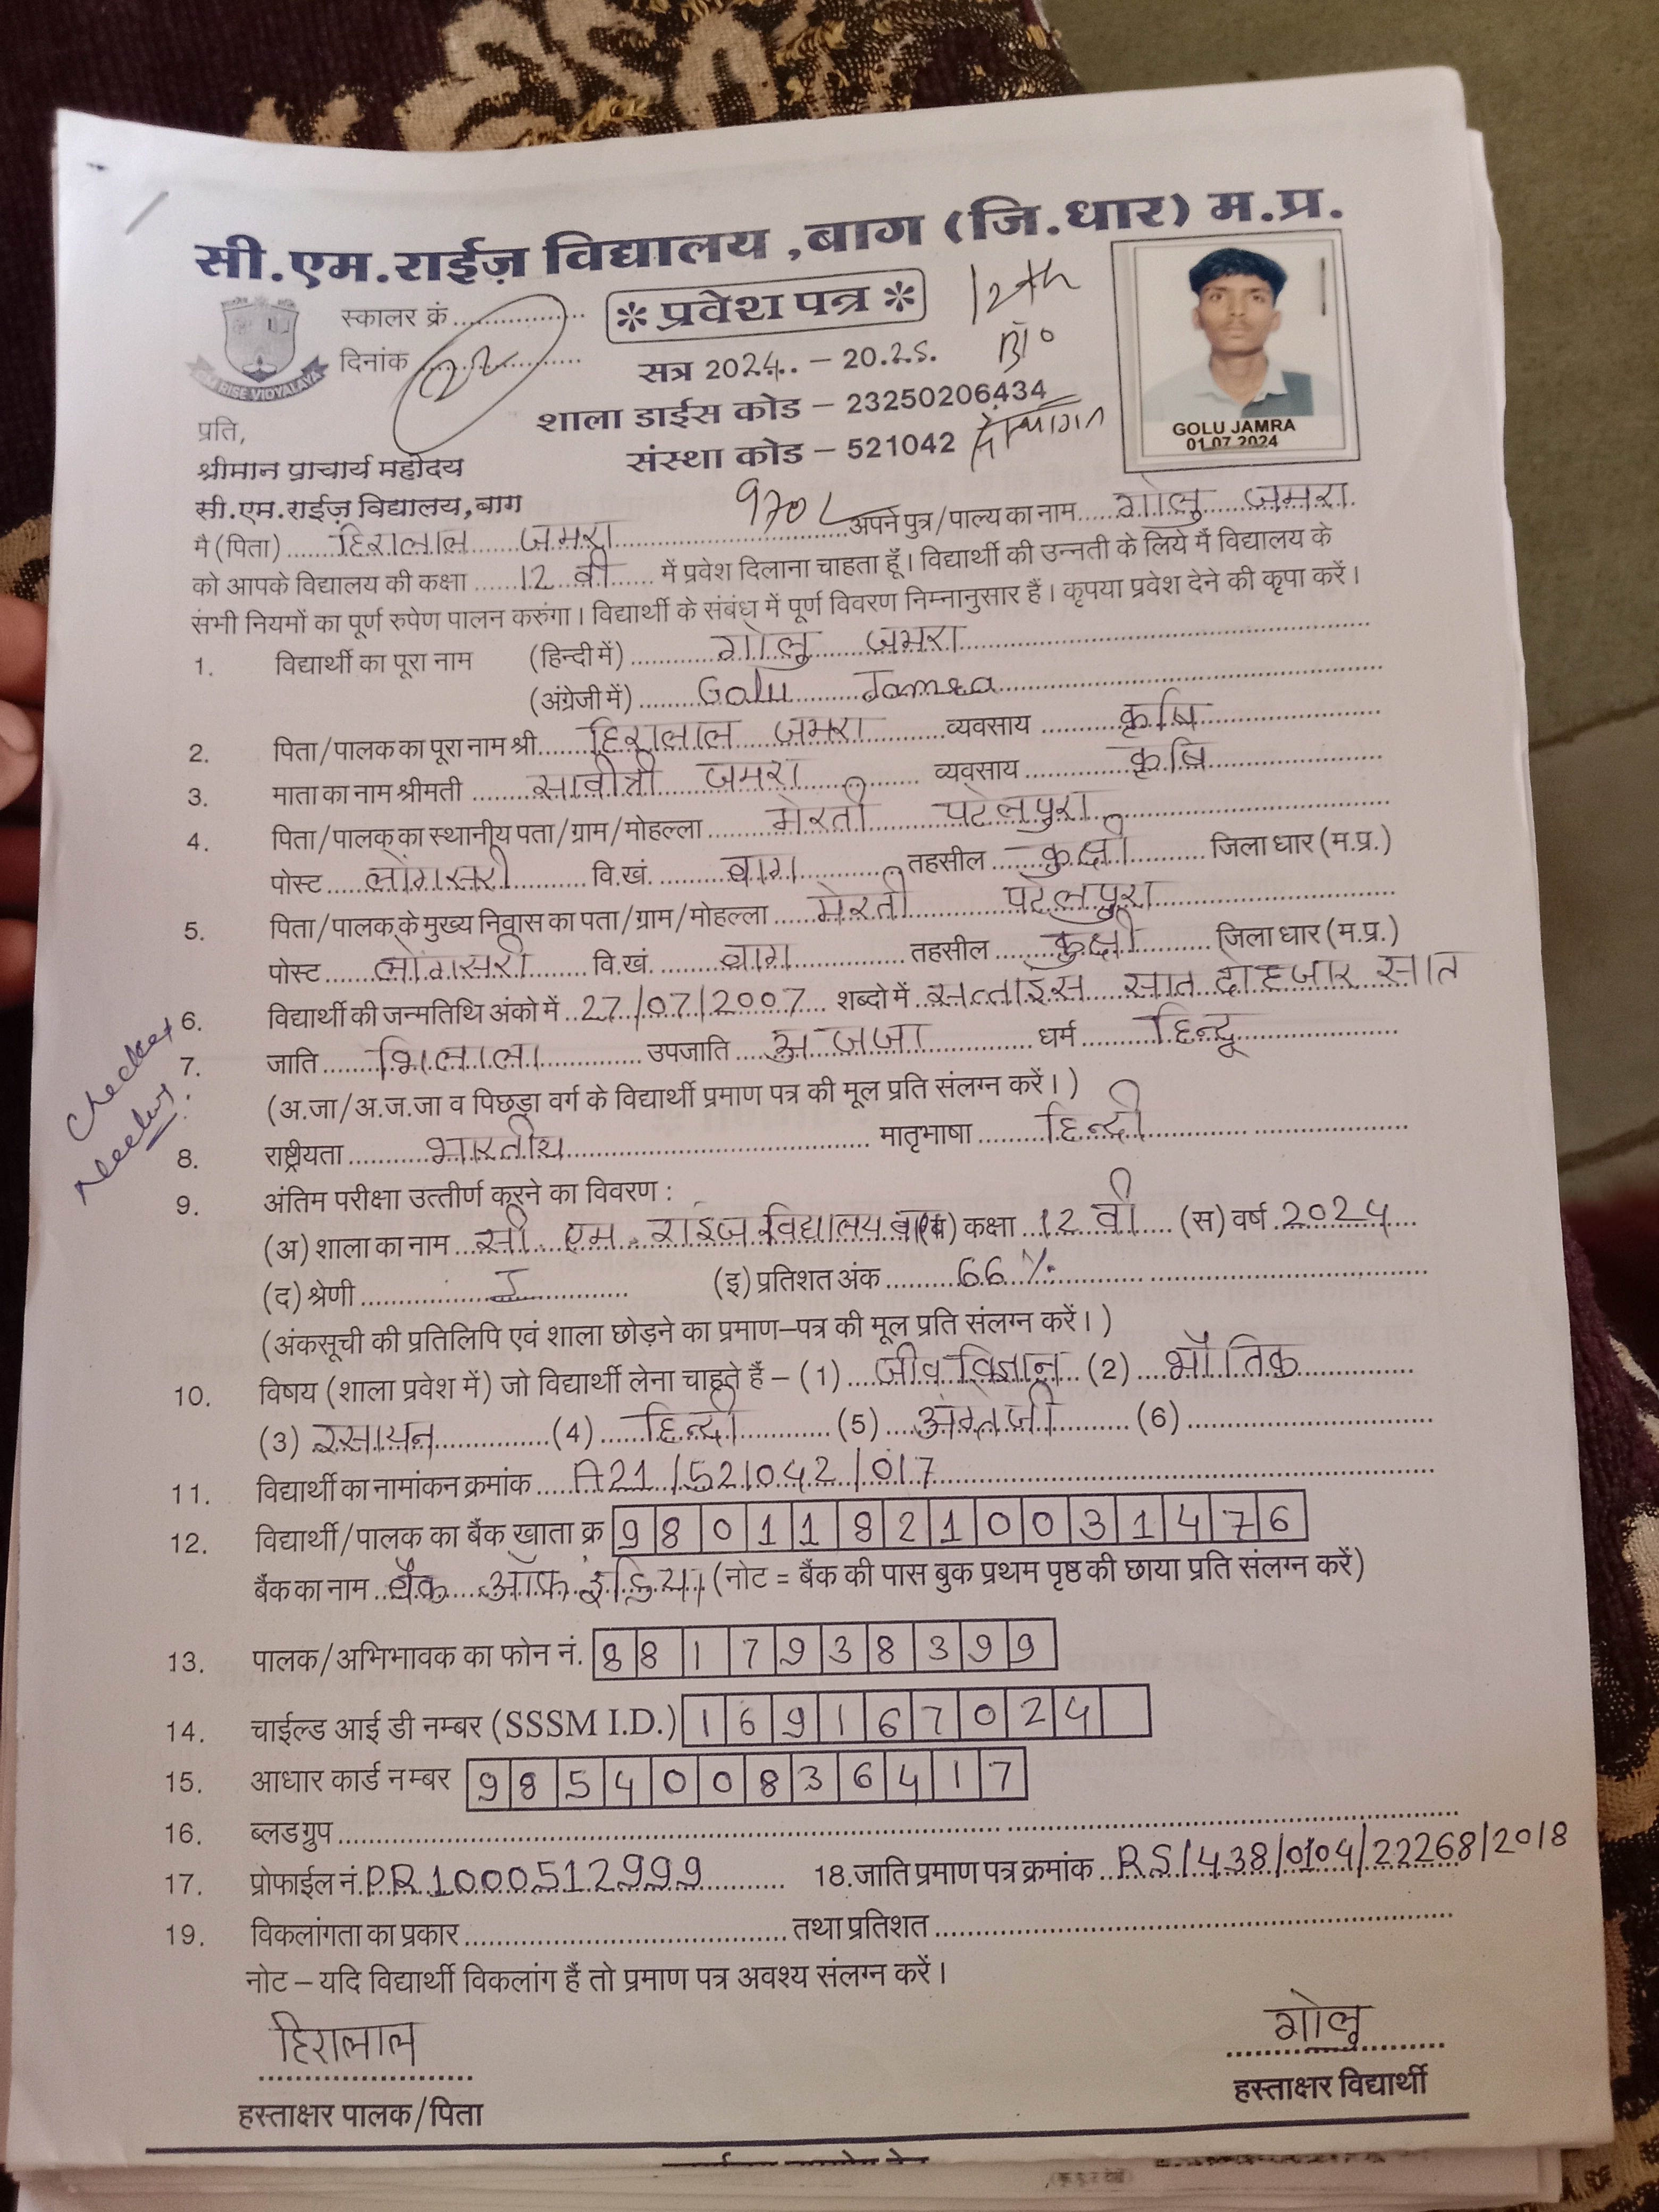 सी.एम.राईज़ विद्यालय ,बाग (जि.धार) म.प्र.
स्कालर क्रं.................. * प्रवेश पत्र * 12th
दिनांक ..................... 22 सत्र 2024. – 20.25. Bio
CM RISE VIDYALAYA
शाला डाईस कोड – 23250206434
संस्था कोड – 521042
GOLU JAMRA
01.07.2024
प्रति,
श्रीमान प्राचार्य महोदय
सी.एम.राईज़ विद्यालय,बाग
मै (पिता) हिरालाल जमरा अपने पुत्र/पाल्य का नाम गोलु जमरा
को आपके विद्यालय की कक्षा 12 वी में प्रवेश दिलाना चाहता हूँ। विद्यार्थी की उन्नती के लिये मैं विद्यालय के
संभी नियमों का पूर्ण रुपेण पालन करुंगा। विद्यार्थी के संबंध में पूर्ण विवरण निम्नानुसार हैं। कृपया प्रवेश देने की कृपा करें।
1. विद्यार्थी का पूरा नाम (हिन्दी में) गोलु जमरा
(अंग्रेजी में) Golu Jamra
2. पिता/पालक का पूरा नाम श्री हिरालाल जमरा व्यवसाय कृषि
3. माता का नाम श्रीमती सावीत्री जमरा व्यवसाय कृषि
4. पिता/पालक का स्थानीय पता/ग्राम/मोहल्ला मेरती पटेलपुरा
पोस्ट लोंगसरी वि.खं. बाग तहसील कुक्षी जिला धार (म.प्र.)
5. पिता/पालक के मुख्य निवास का पता/ग्राम/मोहल्ला मेरती पटेलपुरा
पोस्ट लोंगसरी वि.खं. बाग तहसील कुक्षी जिला धार (म.प्र.)
6. विद्यार्थी की जन्मतिथि अंको में 27/07/2007 शब्दो में सत्ताईस सात दो हजार सात
7. जाति भिलाला उपजाति अ जजा धर्म हिन्दू
(अ.जा/अ.ज.जा व पिछड़ा वर्ग के विद्यार्थी प्रमाण पत्र की मूल प्रति संलग्न करें।)
8. राष्ट्रीयता भारतीय मातृभाषा हिन्दी
9. अंतिम परीक्षा उत्तीर्ण करने का विवरण :
(अ) शाला का नाम सी एम. राईज विद्यालय बाग (ब) कक्षा 12 वी (स) वर्ष 2024
(द) श्रेणी I (इ) प्रतिशत अंक 66 %
(अंकसूची की प्रतिलिपि एवं शाला छोड़ने का प्रमाण–पत्र की मूल प्रति संलग्न करें।)
10. विषय (शाला प्रवेश में) जो विद्यार्थी लेना चाहते हैं – (1) जीव विज्ञान (2) भौतिक
(3) रसायन (4) हिन्दी (5) अंग्रेजी (6)
11. विद्यार्थी का नामांकन क्रमांक A21/521042/017
12. विद्यार्थी/पालक का बैंक खाता क्र 980118210031476
बैंक का नाम बैंक ऑफ इंडिया (नोट = बैंक की पास बुक प्रथम पृष्ठ की छाया प्रति संलग्न करें)
13. पालक/अभिभावक का फोन नं. 8817938399
14. चाईल्ड आई डी नम्बर (SSSM I.D.) 169167024
15. आधार कार्ड नम्बर 985400836417
16. ब्लड ग्रुप
17. प्रोफाईल नं. PR1000512999 18.जाति प्रमाण पत्र क्रमांक RS/438/0104/22268/2018
19. विकलांगता का प्रकार तथा प्रतिशत
नोट – यदि विद्यार्थी विकलांग हैं तो प्रमाण पत्र अवश्य संलग्न करें।
हिरालाल गोलु
हस्ताक्षर पालक/पिता हस्ताक्षर विद्यार्थी